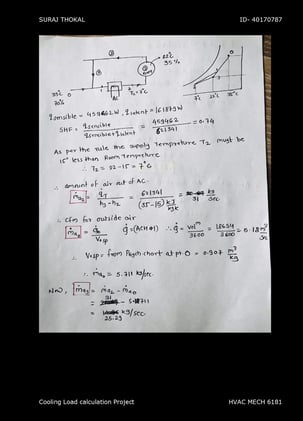 SURAJ THOKAL
ID- 40170787
22°C
35 %
35°C
70%
T₂ = 7°C
AC
7°C 22°C 35°C
qsensible = 459462 W, qlatent = 161879 W
SHF = qsensible / qsensible + qlatent = 459462 / 621341 = 0.74
As per the rule the supply Temprature T2 must be
15° less than Room Temprature
∴ T2 = 22-15 = 7°C
∴ amount of air out of AC.
ṁa2 = qT / h3-h2 = 621341 / (35-15) kJ/kgK = 31 kg/sec
∴ Cfm for outside air
ṁa0 = Q̇ / Vosp Q̇ = (ACH #1) ∴ Q̇ = Vol^m / 3600 = 18654 / 3600 = 5.18 m³/s
∴ Vosp = from Psych chart at pt. 0 = 0.907 m³/kg
∴ ṁa0 = 5.711 kg/sec.
Now, ṁa3 = ṁa2 - ṁa0
= 31 - 5.711
= 25.29 kg/sec
Cooling Load calculation Project
HVAC MECH 6181